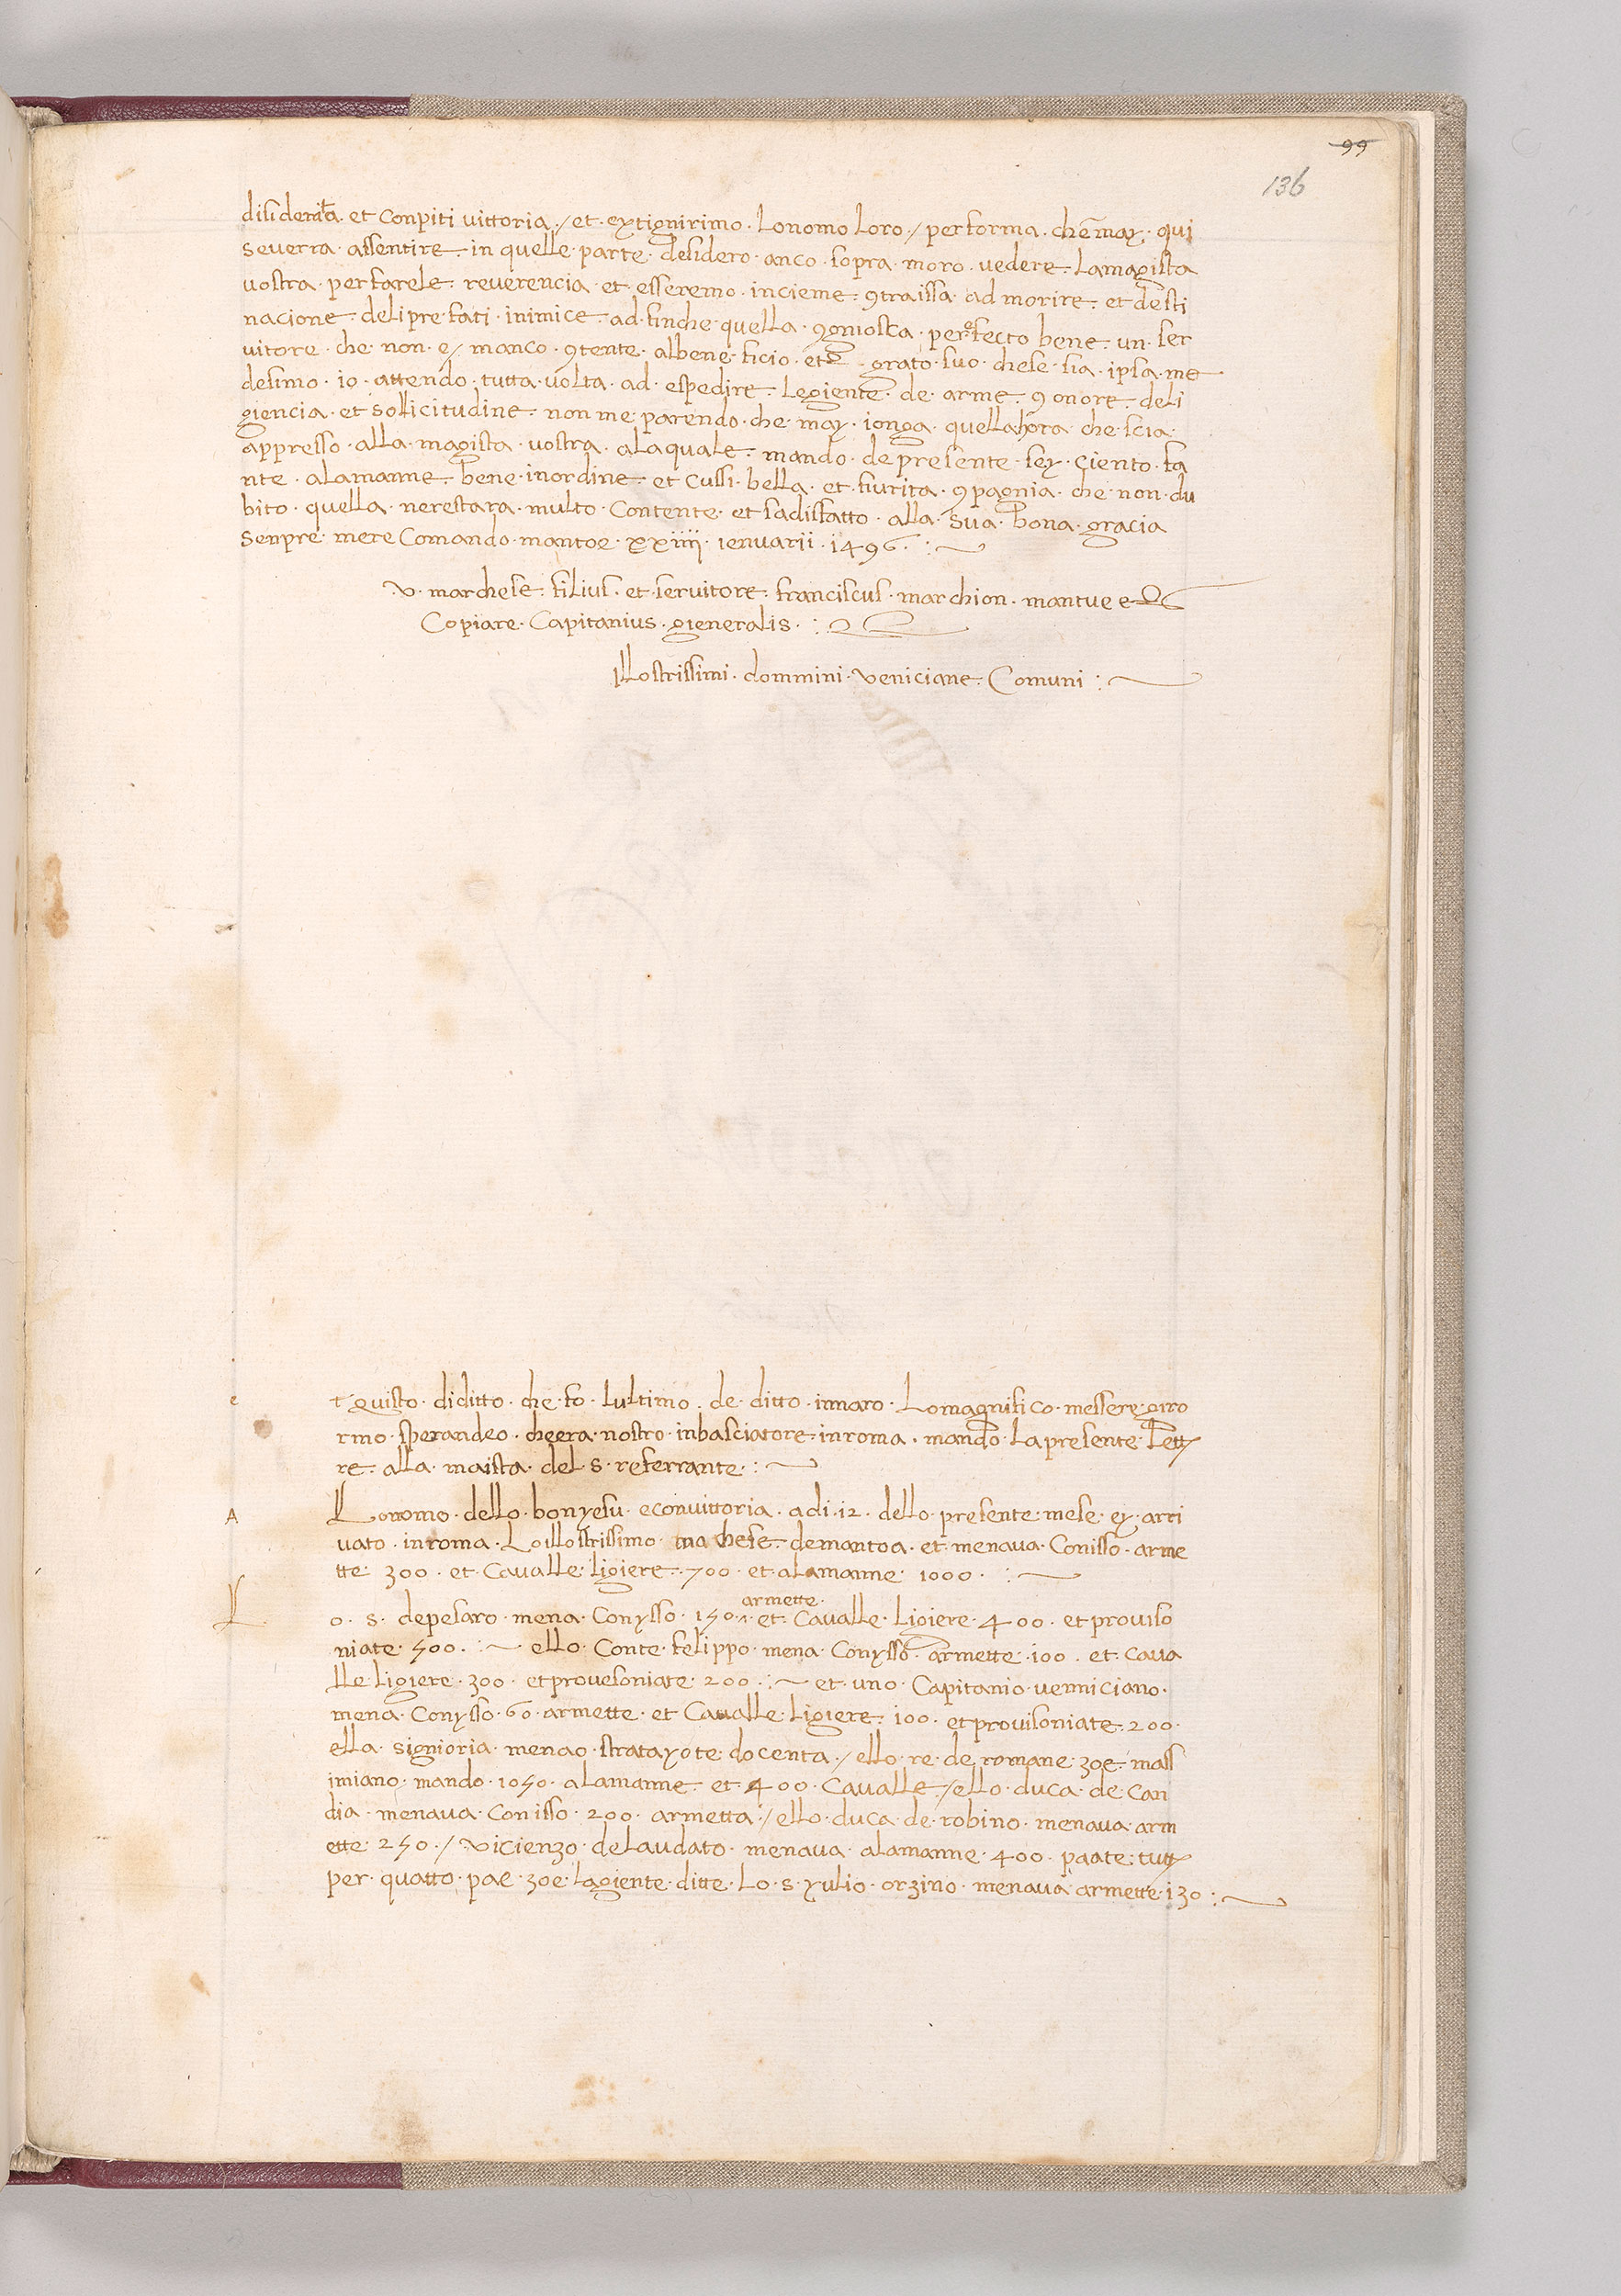 99
136
disiderata · et Conpiti vittoria ·/ et · extignirimo · Lonomo Loro ·/ performa · che may · qui
severra · assentire · in quelle · parte · desidero · anco · sopra · moro · vedere · Lamagista
vostra · perfarele · reverencia · et · esseremo · incieme · 9traissa · ad morire · et desti
nacione · deli pre fati · inimice · ad · finche · quella · 9gniosca · per effecto bene · un · ser
vitore · che · non · ey manco · 9tente · al bene ficio · et · grato · suo · chese · sia · ipsa · me
desimo · io · attendo · tutta · volta · ad · espedire · Legiente · de · arme · 9 onore · deli
giencia · et sollicitudine · non me parendo · che · may · ionga · quellahora · che · scia ·
appresso · alla · magista · vostra · alaquale · mando · de presente · sey · ciento · fa
nte · alamanne · bene · inordine · et Cussi · bella · et · fiurita · 9pagnia · che · non · du
bito · quella · nerestara · multo · Contente · et sadisfatto · alla · Sua · bona · gracia
Senpre · mere Comando · mantoe · xxiiii · ienuarii · 1496 ·:~
v · marchese · filius · et · servitore · franciscus · marchion · mantue e
Copiare · Capitanius · gieneralis ·:
Illostrissimi · dommini · Veniciane · Comuni :~
e
t quisto · diditto · che · fo · lultimo · de · ditto · innaro · Lomagnifico · messere · giro
rmo · sperandeo · cheera · nostro · inbasciatore · inroma · mando · Lapresente · Lett
re · alla · maista · del · s · re ferrante ·:~
A
Lonomo · dello · bonyesu · econvittoria · adi · 12 · dello · presente · mese · ey · arri
vato · inroma · Loillostrissimo · ma chese · demantoa · et · menava · Conisso · arme
tte · 300 · et · Cavalle · ligiere · 700 · et · alamanne · 1000 ·:~
L
o · s · depesaro · mena · Conysso · 150 · armette · et · Cavalle · Ligiere · 400 · et proviso
niate · 500 ·:~ ello · Conte · felippo · mena · Conysso · armette · 100 · et · Cava
lle · ligiere · 300 · et provesoniate · 200 ·:~ et · uno · Capitanio · venniciano ·
mena · Conysso · 60 · armette · et Cavalle · Ligiere · 100 · et provisoniate · 200 ·
ella · signioria · menao · stratayote · docenta ·/ ello · re · de romane · 3oe · mass
imiano · mando · 1050 · alamanne · et · 400 · Cavalle ·/ ello · duca · de Can
dia · menava · Conisso · 200 · armetta ·:/ ello · duca · de · robino · menava · arm
ette · 250 ·/ vicienzo · deLaudato · menava · alamanne · 400 · paate · tutt
per · quatto · pae · 3oe · Lagiente · ditte · Lo · s · yulio · orzino · menava armette · 130 :~